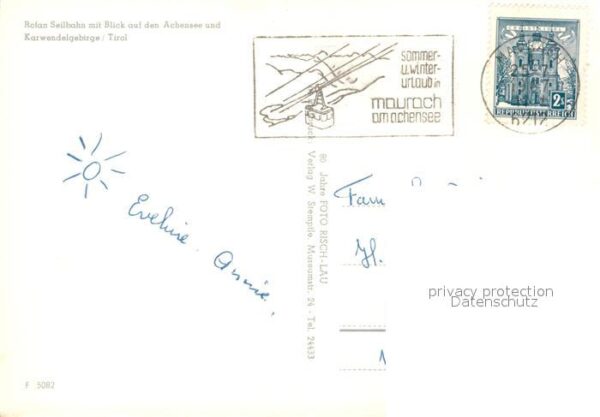 Rofan Seilbahn mit Blick auf den Achensee und
Karwendelgebirge / Tirol
sommer-
u.winter-
urlaub in
maurach
am achensee
2
S
REPUBLIK ÖSTERREICH
6212
Eveline. Annie.
80 Jahre FOTO RISCH-LAU
Verlag W. Stempfle, Museumstr. 24 - Tel. 24433
Fam
H.
privacy protection
Datenschutz
F 5082